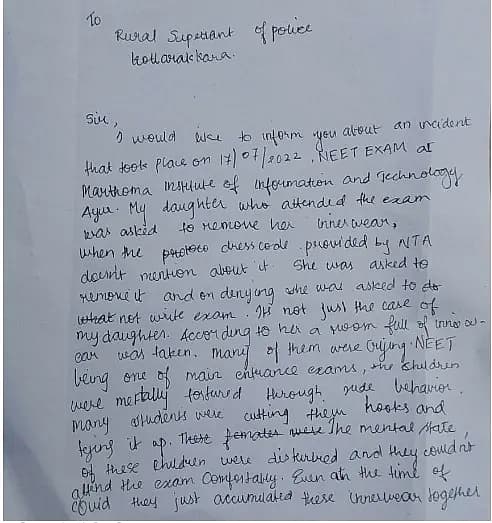 To
Rural Supetiant of police
kottarakkara.
Sir,
I would like to inform you about an incident
that took place on 17/07/2022, NEET EXAM at
Marthoma Institute of Information and Technology
Ayur. My daughter who attended the exam
was asked to remove her innerwear,
when the dress code provided by NTA
doesn't mention about it. She was asked to
remove it and on denying she was asked to do
what not write exam. Its not just the case of
my daughter. According to her a room full of innerw-
ear was taken. Many of them were Crying. NEET
being one of main entrance exams, the children
were mentally tortured through rude behavior.
Many students were cutting their hooks and
tying it up. These females were The mental state
of these children were disturbed and they couldnt
attend the exam Comfortably. Even at the time of
covid they just accumulated these innerwear together